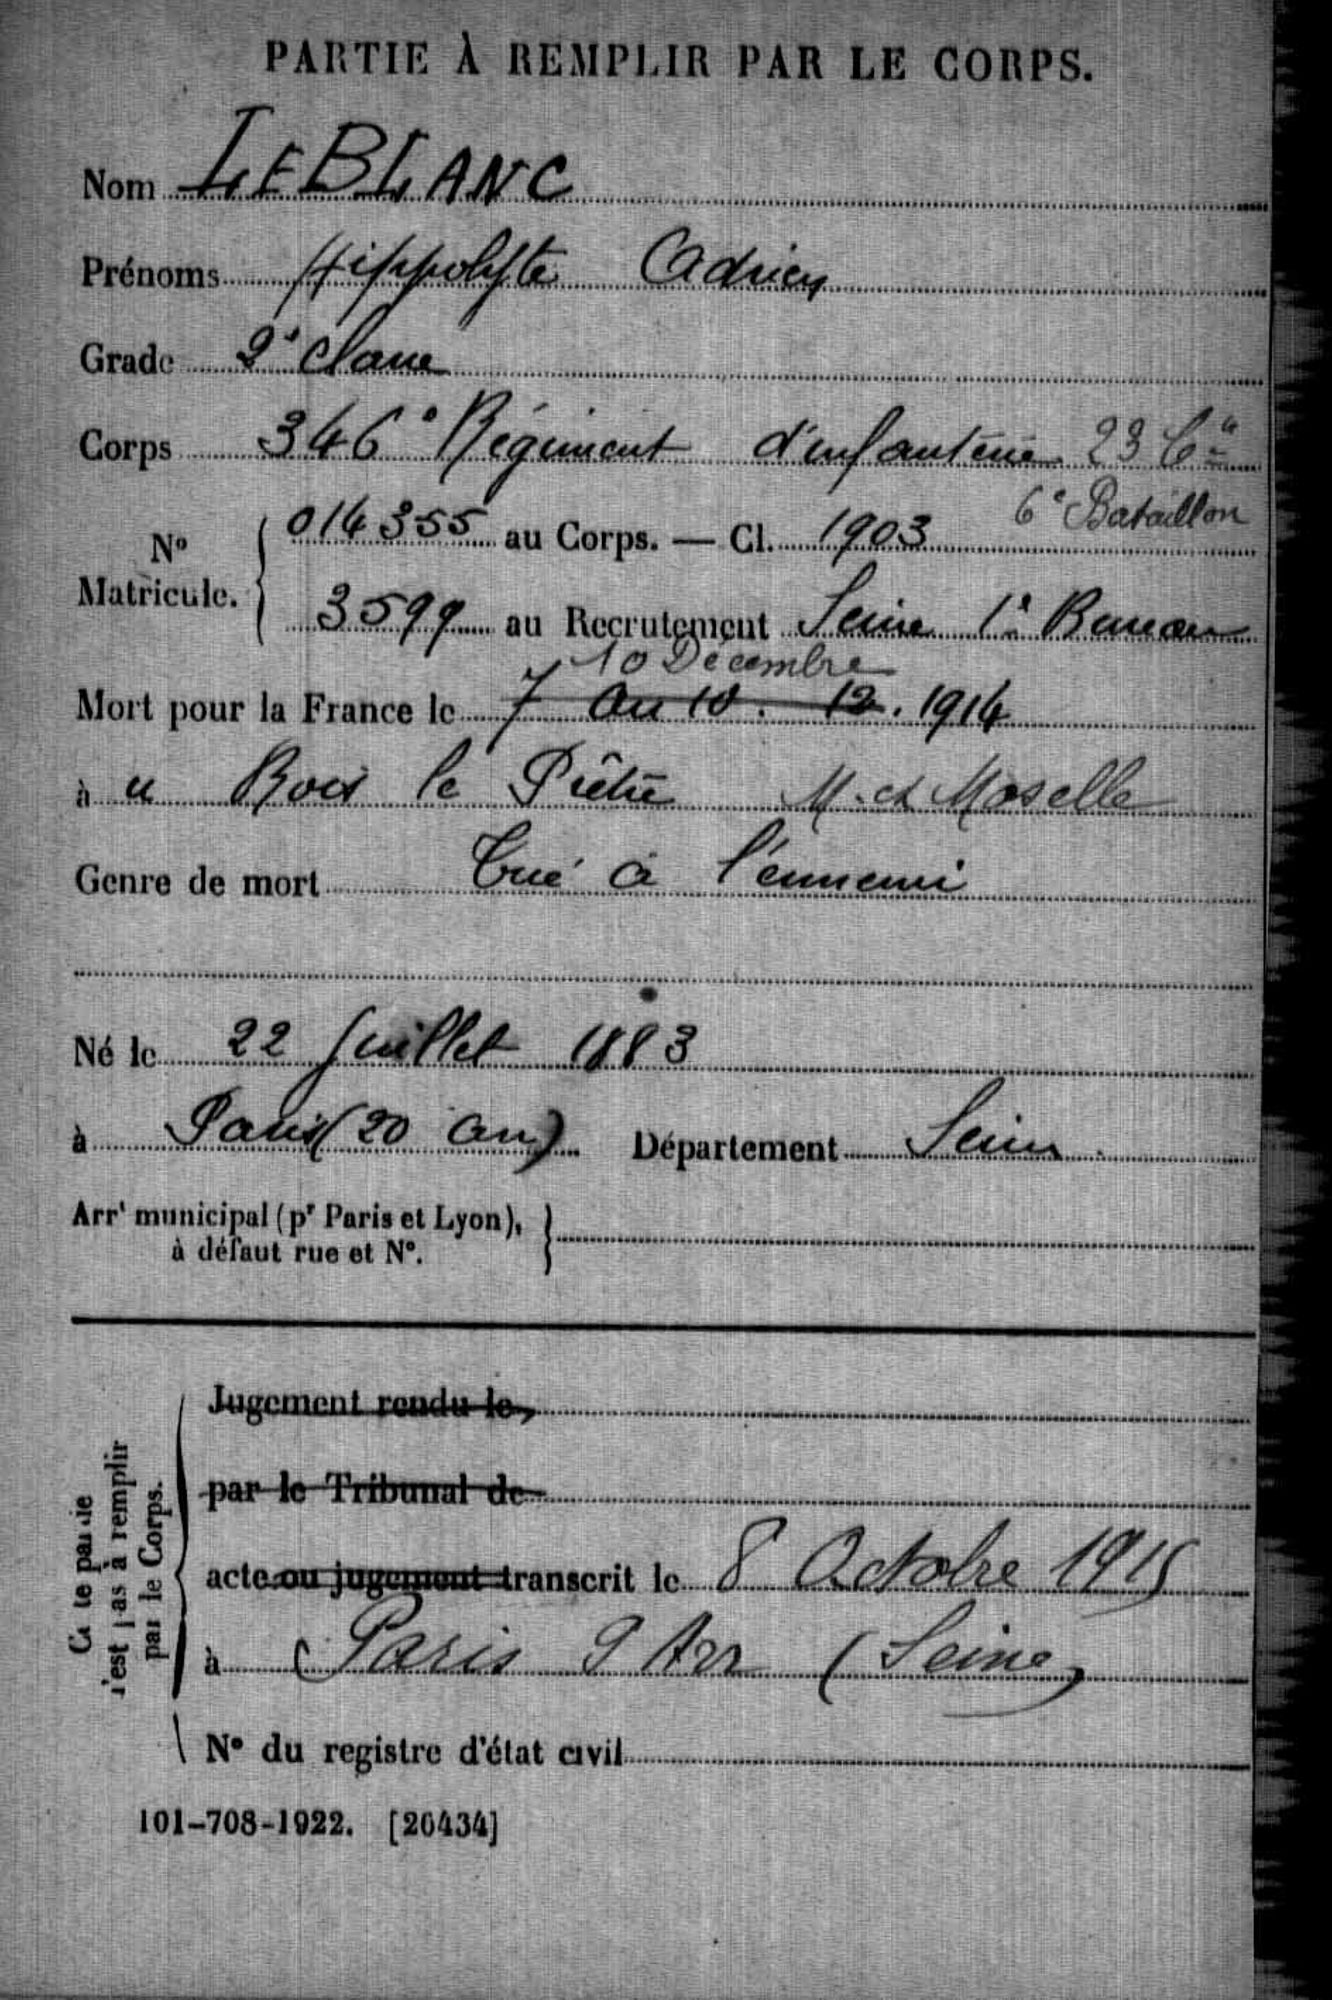 PARTIE À REMPLIR PAR LE CORPS.
Nom LEBLANC
Prénoms Hippolyte Adrien
Grade 2e classe
Corps 346e Régiment d'infanterie 23 Cie
6e Bataillon
No Matricule. { 014355 au Corps. — Cl. 1903
3599 au Recrutement Seine 1er Bureau
10 Décembre
Mort pour la France le 7 au 10. 12. 1914
à u Bois le Prêtre M. et Moselle
Genre de mort Tué à l'ennemi
Né le 22 Juillet 1883
à Paris (20 arr) Département Seine
Arrt municipal (pr Paris et Lyon), }
à défaut rue et No.
Jugement rendu le,
par le Tribunal de
acte ou jugement transcrit le 8 Octobre 1915
à Paris 9 Arr (Seine)
No du registre d'état civil
Cette partie
n'est pas à remplir
par le Corps.
101-708-1922. [26434]